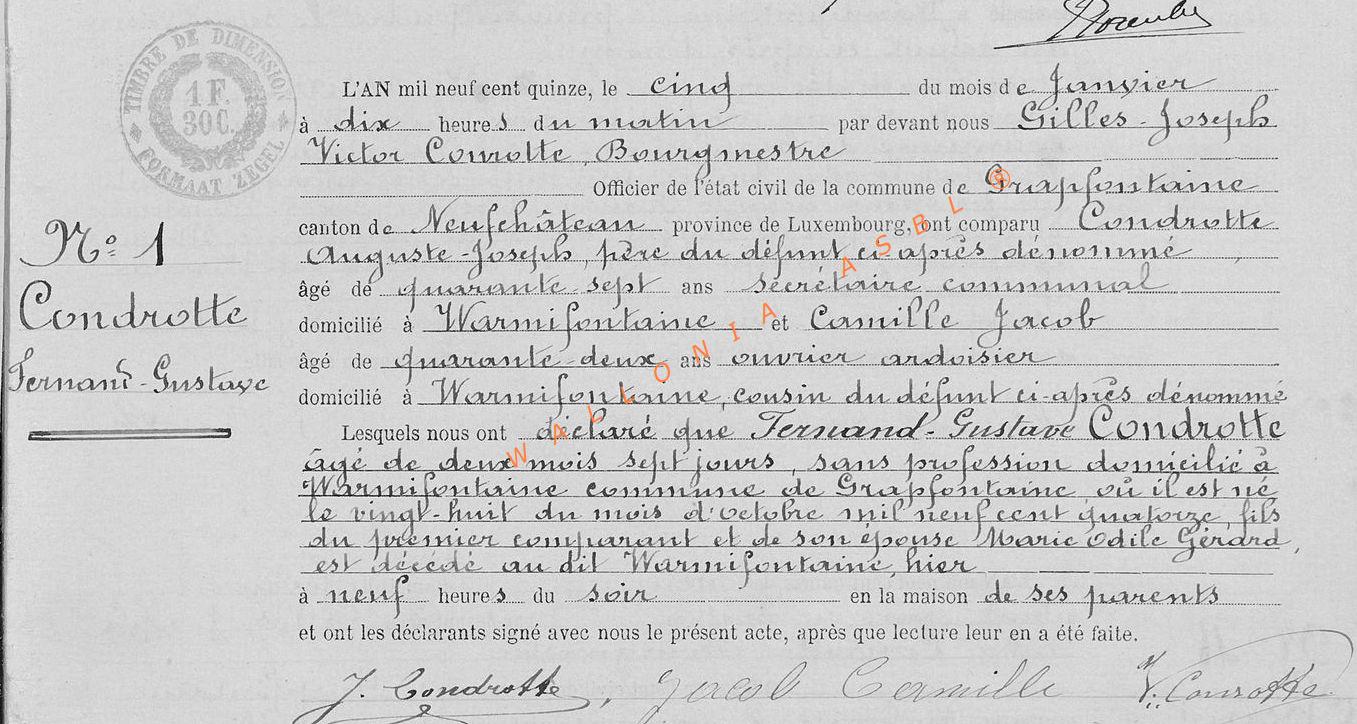 TIMBRE DE DIMENSION
1 F.
30 C.
FORMAAT ZEGEL
L'AN mil neuf cent quinze, le cinq du mois de Janvier
à dix heures du matin par devant nous Gilles-Joseph
Victor Courotte, Bourgmestre
Officier de l'état civil de la commune de Grapfontaine
canton de Neufchâteau province de Luxembourg, ont comparu Condrotte
Auguste-Joseph, père du défunt ci après dénommé,
âgé de quarante sept ans secrétaire communal
domicilié à Warmifontaine et Camille Jacob
âgé de quarante-deux ans ouvrier ardoisier
domicilié à Warmifontaine, cousin du défunt ci-après dénommé
Lesquels nous ont déclaré que Fernand-Gustave Condrotte
âgé de deux mois sept jours, sans profession domicilié à
Warmifontaine commune de Grapfontaine où il est né
le vingt-huit du mois d'octobre mil neuf cent quatorze, fils
du premier comparant et de son épouse Marie Odile Gérard,
est décédé au dit Warmifontaine, hier
à neuf heures du soir en la maison de ses parents
et ont les déclarants signé avec nous le présent acte, après que lecture leur en a été faite.
J. Condrotte, Jacob Camille V. Courotte
N° 1
Condrotte
Fernand-Gustave
WALLONIA ASBL ®